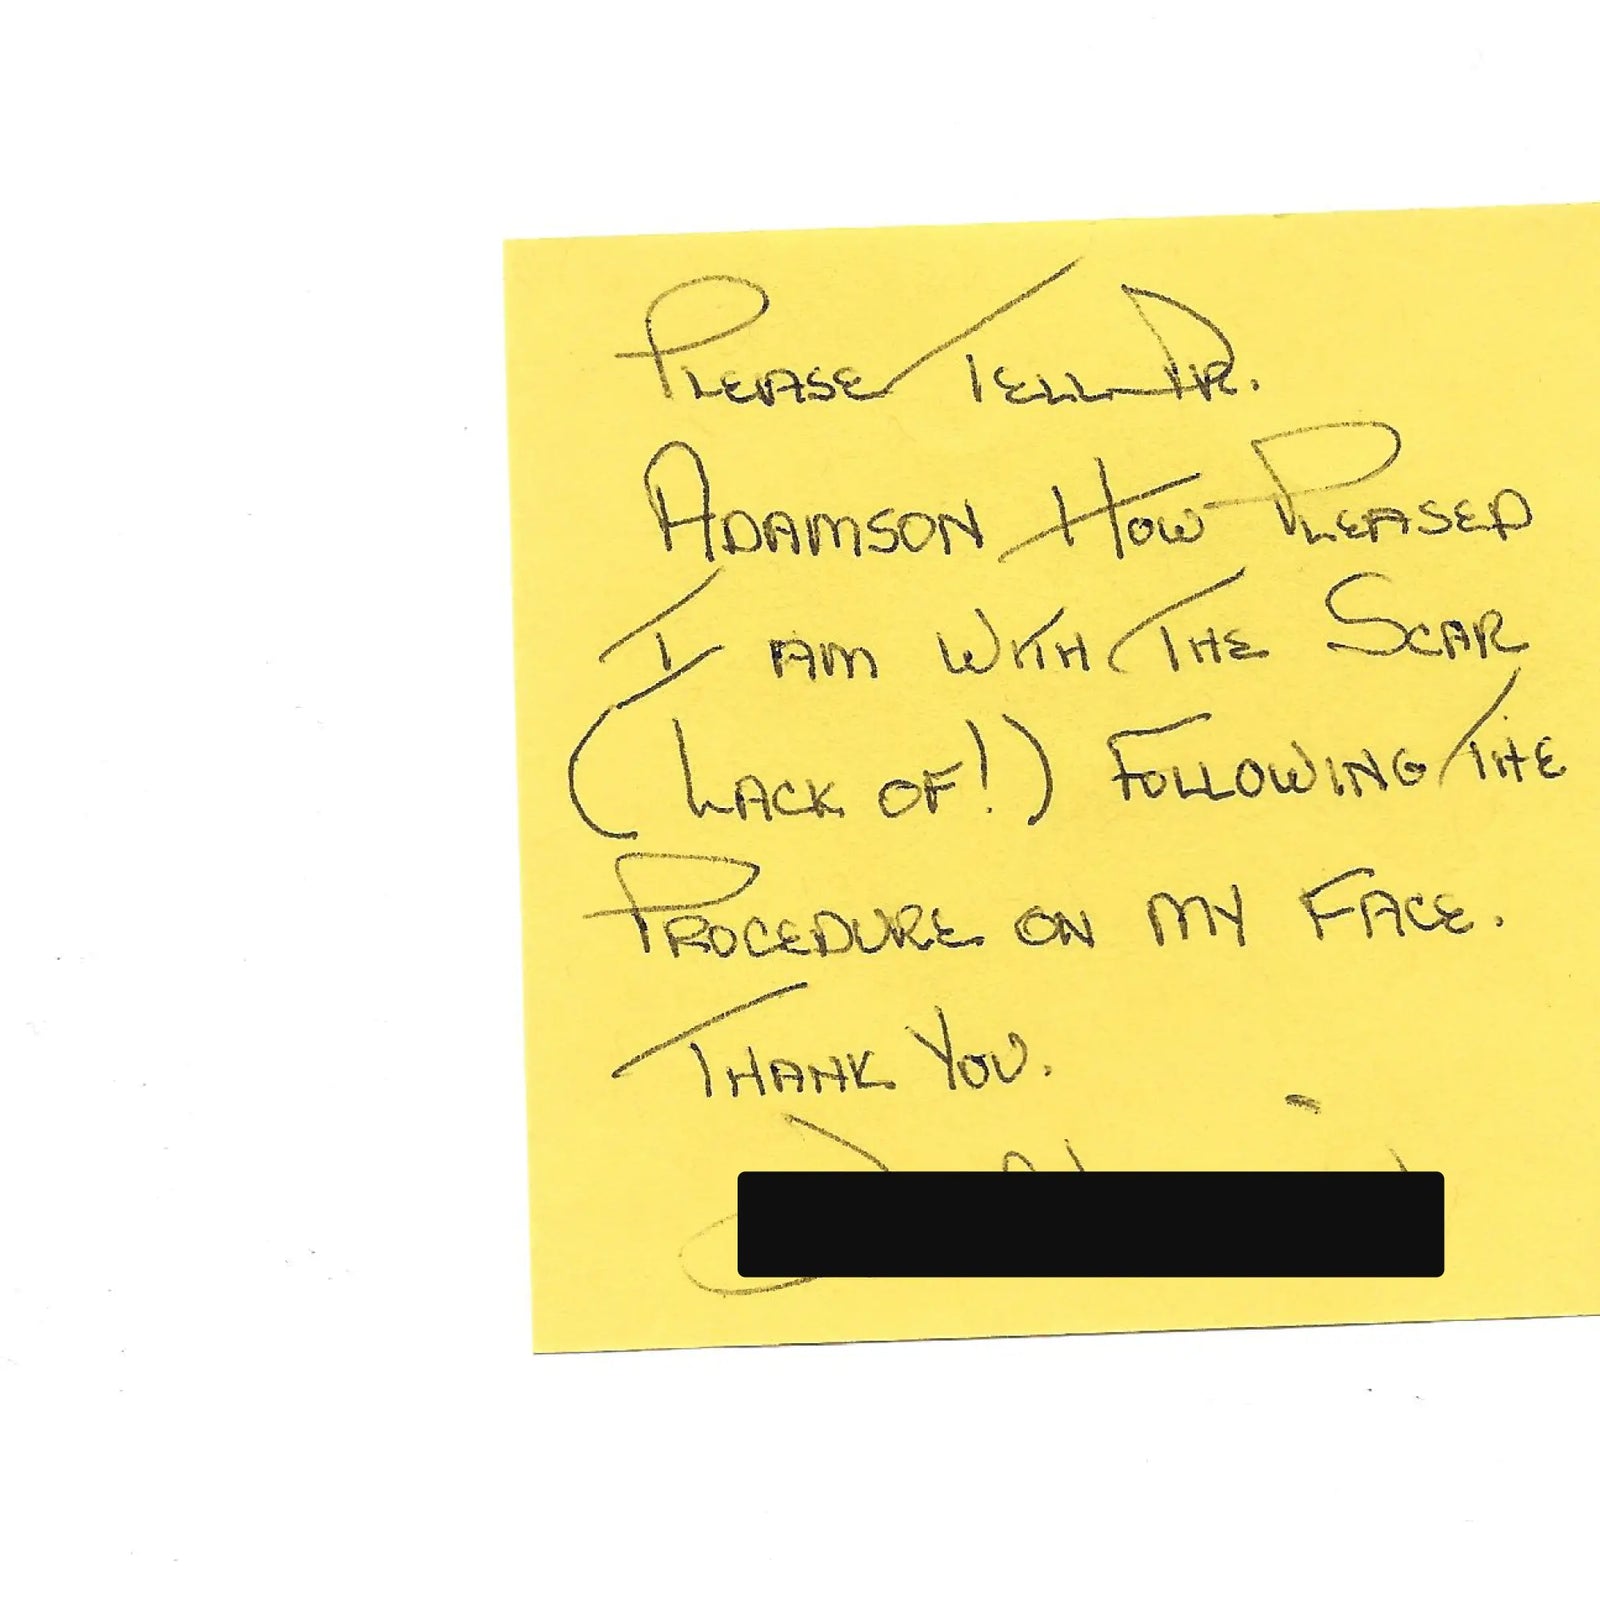 Please Tell Dr.
Adamson How Pleased
I am with the Scar
(Lack of!) Following the
Procedure on my Face.
Thank You.